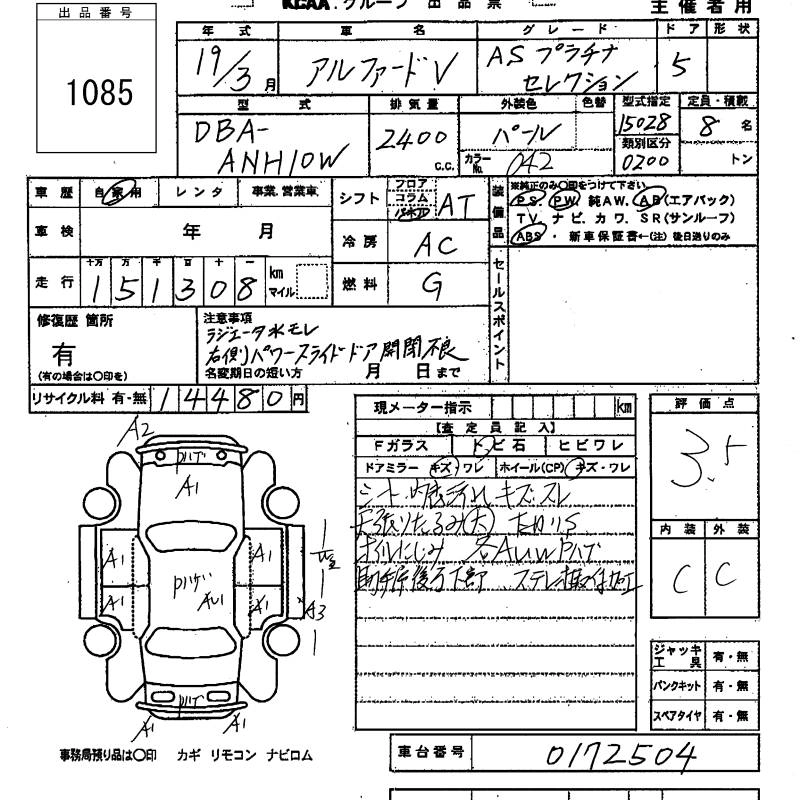 KCAA.グループ 出品票
主催者用
出品番号
1085
年式 車名 グレード ドア 形状
19/3月 アルファードV ASプラチナセレクション 5
型式 排気量 外装色 色替 型式指定 定員・積載
DBA-ANH10W 2400 C.C. パール 15028 8名
カラーNo. 042 類別区分 0200 トン
車歴 自家用 レンタ 事業.営業車 シフト フロア コラム AT
装備品 ※純正のみ○印をつけて下さい
PS. PW. 純AW. AB(エアバック)
TV. ナビ. カワ. SR(サンルーフ)
ABS・新車保証書←(注)後日送りのみ
車検 年 月 冷房 AC
走行 十万 万 千 百 十 一
151308 km マイル 燃料 G
セールスポイント
修復歴 箇所
有
(有の場合は○印を)
注意事項
ラジエータ水モレ
右側パワースライドドア開閉不良
名変期日の短い方 月 日まで
リサイクル料 有・無 14480円
現メーター指示 km
【査定員記入】
Fガラス トビ石 ヒビワレ
ドアミラー キズ・ワレ ホイール(CP) キズ・ワレ
シート・内装汚れ キズ・スレ
天張りたるみ(大)
オイルにじみ
評価点
3.5
内装 外装
C C
A2
A1
A1 A1
A1 A1
A3
A1 A1
ジャッキ工具 有・無
パンクキット 有・無
スペアタイヤ 有・無
事務局預り品は○印 カギ リモコン ナビロム
車台番号 0172504